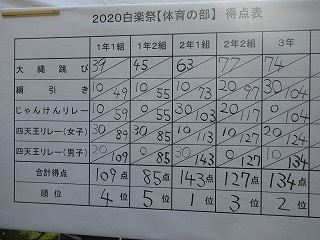 2020白楽祭【体育の部】 得点表
1年1組 1年2組 2年1組 2年2組 3年
大縄跳び 39 45 63 77 74
綱引き 10/49 10/55 10/73 20/97 30/104
じゃんけんリレー 10/59 0/55 30/103 20/117 0/104
四天王リレー(女子) 30/89 30/85 10/113 10/127 20/124
四天王リレー(男子) 20/109 0/85 30/143 0/127 10/134
合計得点 109点 85点 143点 127点 134点
順位 4位 5位 1位 3位 2位